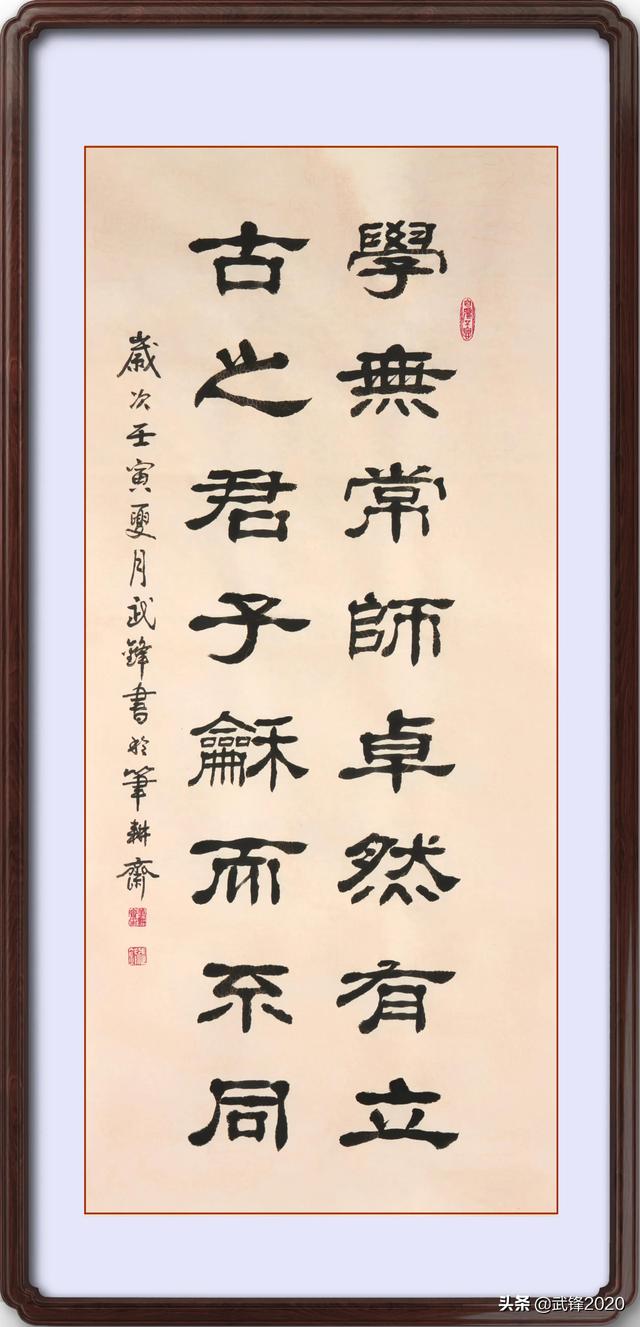 學無常師卓然有立
古之君子龢而不同
歲次壬寅夏月武鋒書於筆耕齋
头条 @武锋2020